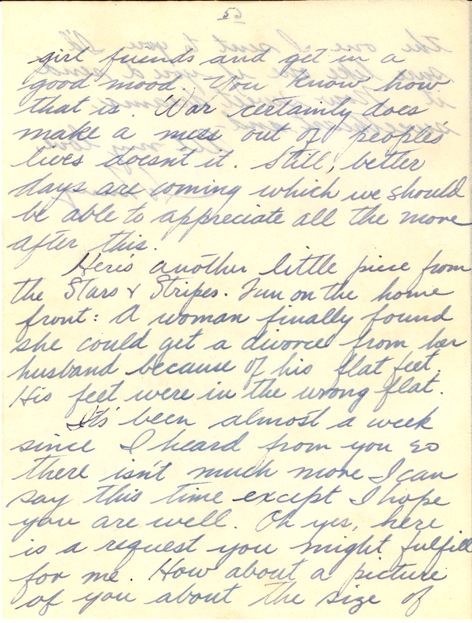 5
girl friends and get in a
good mood. You know how
that is. War certainly does
make a mess out of peoples
lives doesn't it. Still, better
days are coming which we should
be able to appreciate all the more
after this.
Here's another little piece from
the Stars & Stripes. Fun on the home
front: A woman finally found
she could get a divorce from her
husband because of his flat feet.
His feet were in the wrong flat.
It's been almost a week
since I heard from you so
there isn't much more I can
say this time except I hope
you are well. Oh yes, here
is a request you might fulfill
for me. How about a picture
of you about the size of